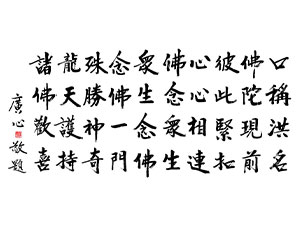 口稱洪名
佛陀現前
彼此緊扣
心心相連
佛心眾生
眾生念佛
念佛一門
殊勝神奇
龍天護持
諸佛歡喜
廣心敬題